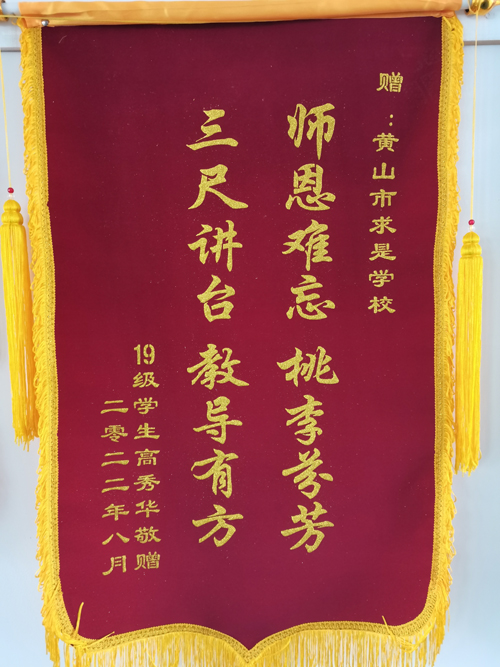 赠：黄山市求是学校
师恩难忘 桃李芬芳
三尺讲台 教导有方
19级学生高秀华敬赠
二零二二年八月